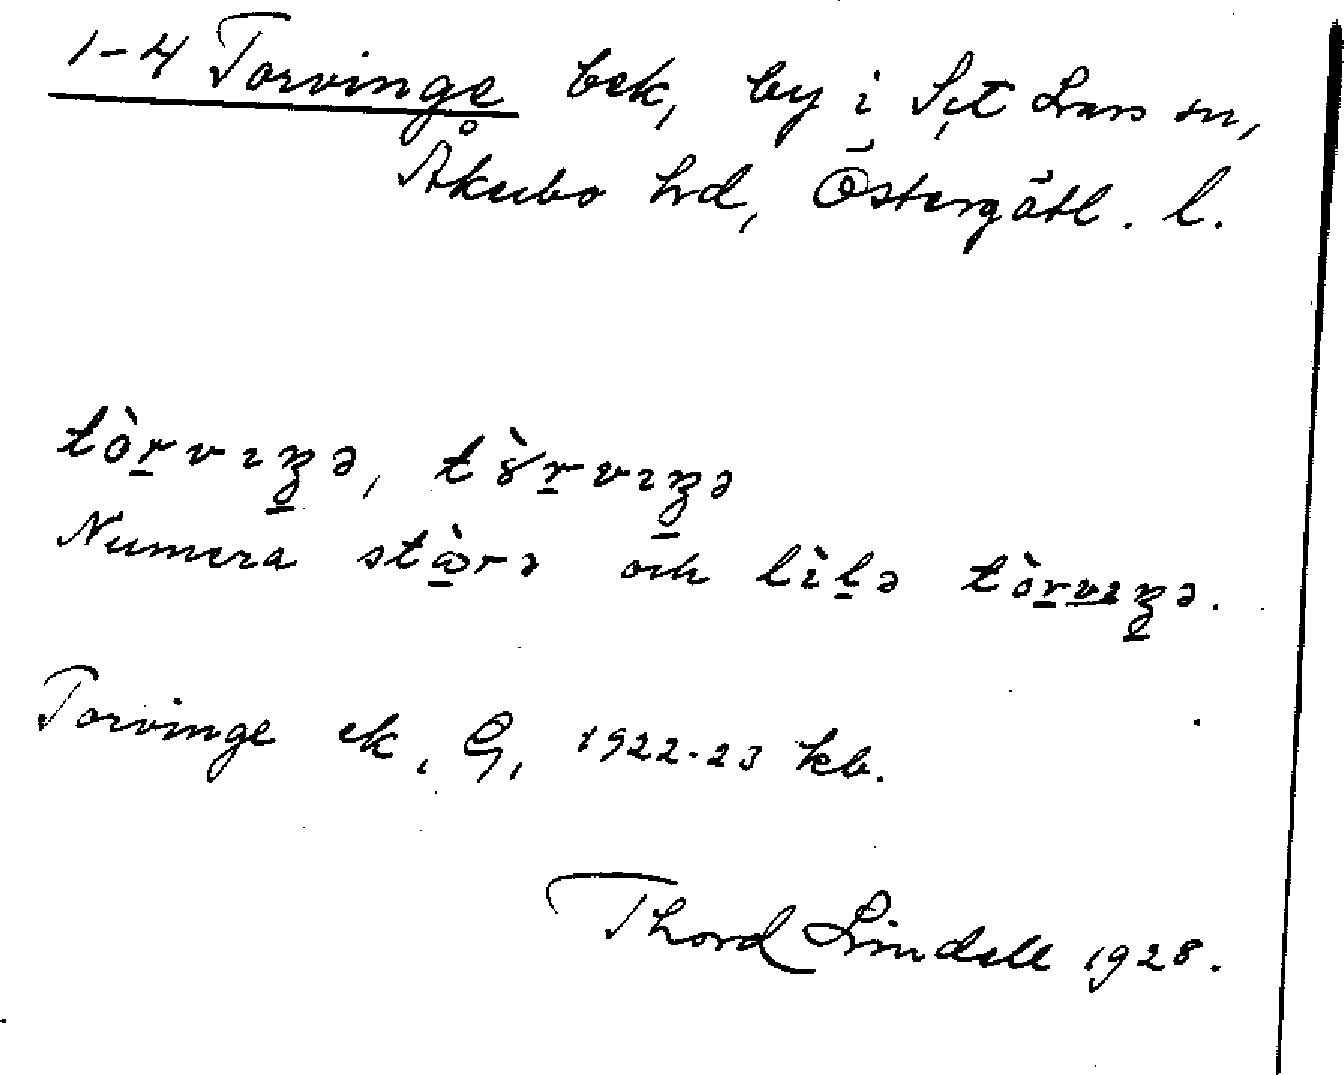 1-4 Torvinge bek, by i S:t Lars sn,
Åkerbo hrd, Östergötl. l.
tòrvıŋə, tɤ̀rvıŋə
Numera stòrə och lìlə tòrvıŋə.
Torvinge ek, G, 1922-23 kb.
Thord Lindell 1928.